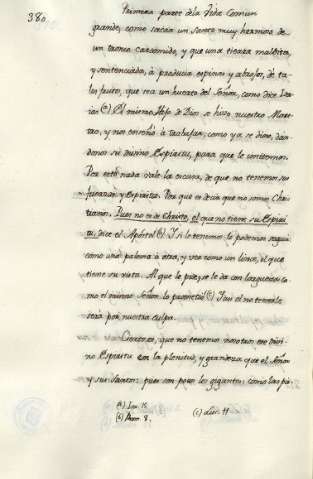 380.
Primera parte de la Vida Comun
grande, como sacar un Santo muy hermoso de
un tronco carcomido, y que una tierra maldita,
y sentenciada, á producir espinas y abrojos, de ta-
les frutos, que sea un huerto del Señor, como dice Isa-
ias (a) El mismo Hijo de Dios se hizo nuestro Maes-
tro, y nos enseñó á trabajar, como ya se dixo, dan-
donos su divino Espiritu, para que le
Por esto nada vale la escusa, de que no tenemos su
fuerza y Espiritu. Por que es decir que no somos Chris-
tianos. Pues no es de Christo, el que no tiene su Espiri-
tu, dice el Apostol (b) I si le tenemos le podemos seguir
como una paloma á otra, y ver como un lince, el que
tiene su vista. Al que le pide, se le da con larguesa co-
mo el mismo Señor lo prometió (c) I asi el no tenerle
será por nuestra culpa.
Cierto es, que no tenemos nosotros ese Divi-
no Espiritu con la plenitud, y grandeza que el Señor
y sus Santos: pues son pocos los gigantes, como las
(a) Isa.
(b) Rom. 8.
(c) Luc. 11